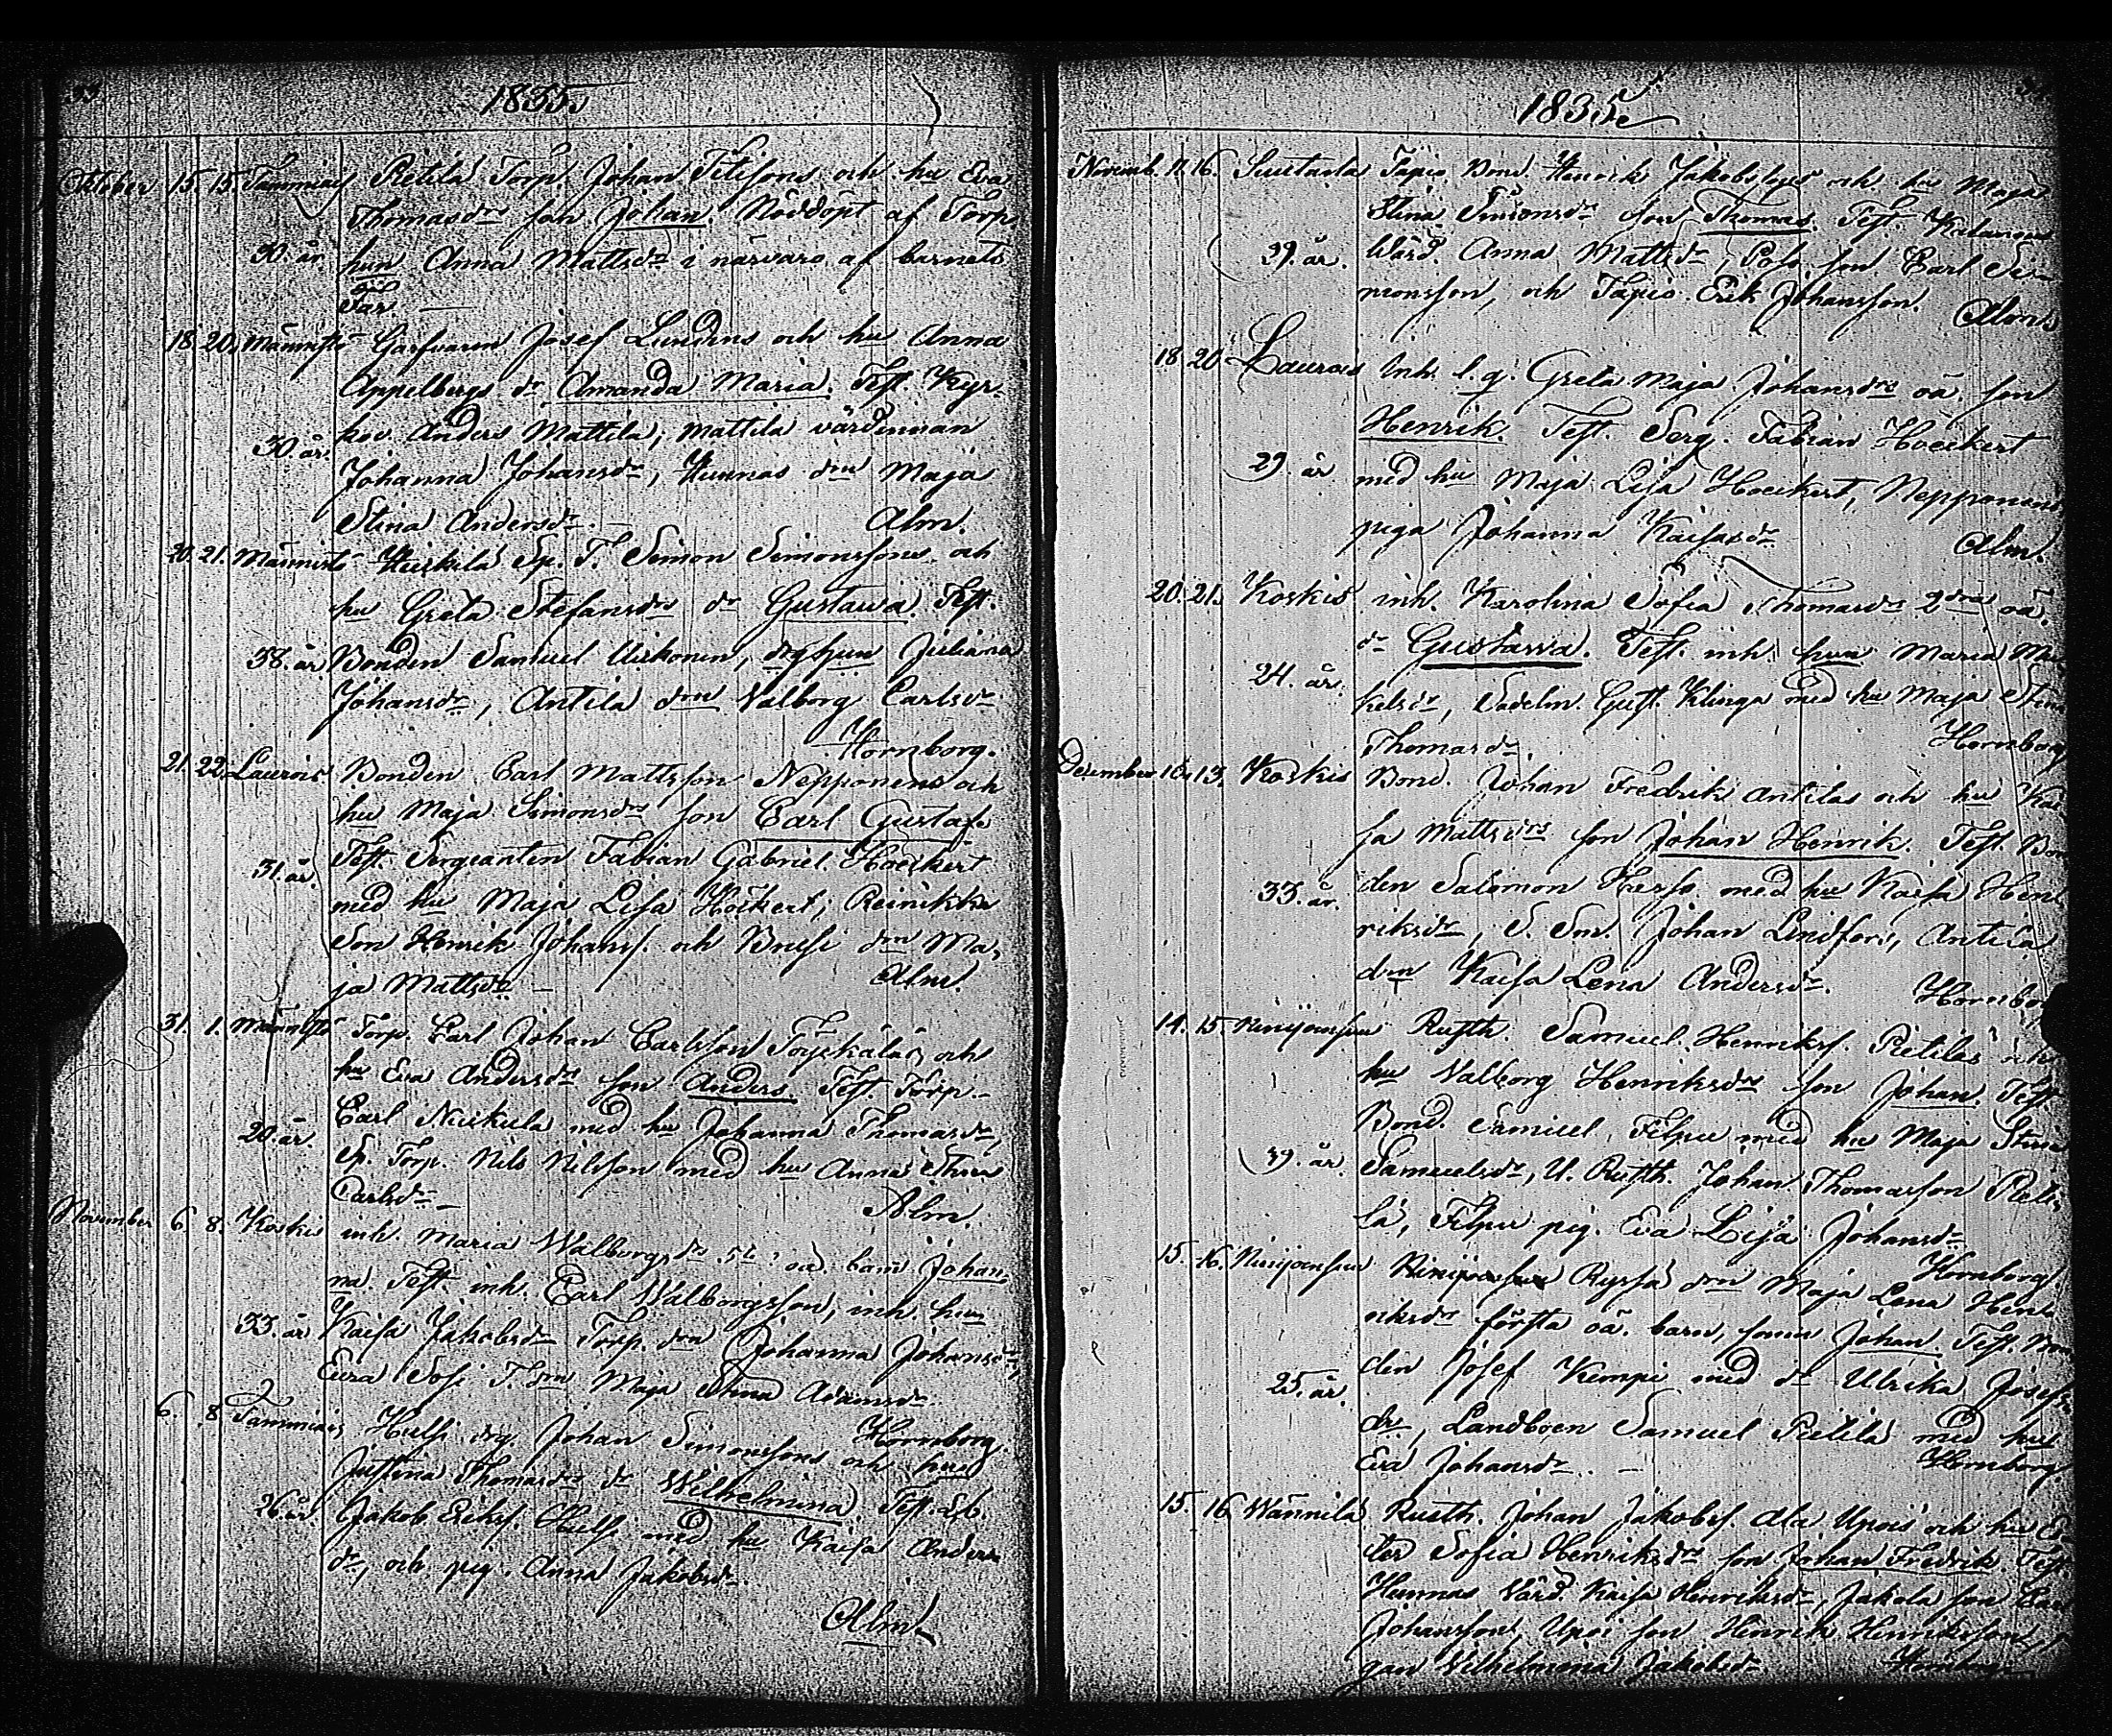 33
1835.
October 15. 15. Tammiais Pietilä Torp. Johan Titisons och hu Eva
Thomasdrs son Johan. Nöddöpt af Torp.
30. år. hun Anna Mattsdr i närvaro af barnets
Far
18 20. Männistö Garfvaren Josef Lundéns och hu Anna
Appelbergs dr Amanda Maria. Test. Kyr-
30 år. kov. Anders Mattila, Mattila värdinnan
Johanna Johansdr, Hunnas drn Maja
Stina Andersdr. Alm.
20. 21. Männistö Sp. T. Simon Simonssons och
hu Greta Stefansdrs dr Gustava. Test.
38. år Bonden Samuel Uirkonen, drghun Juliana
Johansdr, Antila drn Valborg Carlsdr
Hornborg.
21. 22. Laurois Bonden Carl Mattsson Nepponens och
hu Maja Simonsdrs son Carl Gustaf.
31. år. Test. Sergeanten Fabian Gabriel Hoeckert
med hu Maja Lisa Höckert, Reinikka
Son Henrik Johanss. och drn Ma-
ja Mattsdr Alm.
31. 1. Männistö Torp. Carl Johan Carlsson och
hu Eva Andersdrs son Anders. Test. Torp.
20. år. Carl med hu Johanna Thomasdr,
Sp. Torp. Nils Nilsson med hu Anna Stina
Carlsdr Alm.
November 6. 8. Koskis inh. Maria Walborgsdrs 5te oä. barn Johan-
na. Test. inh. Carl Walborgsson, inh. hun
33. år Kaisa Jakobsdr Torp. drn Johanna Johansdr,
Eura T. drn Maja Stina Adamsdr.
Hornborg.
6. 8 Tammiais drg. Johan Simonssons och hu
Justina Thomasdrs dr Wilhelmina. Test. Lb.
26 år. Jakob Erikss. med hu Kaisa Anders
dr, och pig. Anna Jakobsdr.
Alm.
1835.
Novemb. 11 16. Suutarla Tapio Bond. Henrik Jakobssons och hu Maja
Stina Simonsdrs son Thomas. Test.
39. år. Värd. Anna Mattsdr, son Carl Si-
monsson, och Tapio Erik Johansson. Alm
18 20 Laurois Inh. l. q. Greta Maja Johansdrs oä. son
Henrik. Test. Serg. Fabian Hoeckert
29. år med hu Maja Lisa Hoeckert, Nepponens
piga Johanna Kaisasdr Alm.
20. 21. Koskis inh. Karolina Sofia Thomasdrs 2dra oä.
dr Gustava. Test. inh. hun Maria Mi-
24. år. kelsdr, Sadelm. Gust. Klinga med hu Maja Stina
Thomasdr. Hornborg
December 10. 13. Koskis Bond. Johan Fredrik Antilas och hu Kai
sa Mattsdrs son Johan Henrik. Test. Bon
33. år. den Salomon med hu Kaisa Hen
riksdr, S. Son. Johan Lindfors, Antila
drn Kaisa Lena Andersdr. Hornborg
14. 15. Niinijoensuu Rusth. Samuel Henrikss. Pietiläs och
hu Valborg Henriksdrs son Johan. Test
Bond. Samuel Filpu med hu Maja Stina
39. år. Samuelsdr, U. Rusth. Johan Thomasson Pieti-
lä, Filpu pig. Eva Lisa Johansdr
Hornborg.
15. 16. Niinijoensuu Niinijoensuu drn Maja Lena Hen
riksdrs första oä. barn, sonen Johan. Test. Bon
25. år. den Josef Kempi med dr Ulrika Josefs
dr, Landboen Samuel Pietilä med hu
Eva Johansdr. Hornborg.
15. 16 Männilä Rusth. Johan Jakobss. Ala Upois och hu E
ter Sofia Henriksdrs son Johan Fredrik. Test
Hunnas Värd. Kaisa Henriksdr, Jakola son Carl
Johansson, Upoi son Henrik Henriksson,
gan Vilhelmina Jakobsdr. Hornborg.